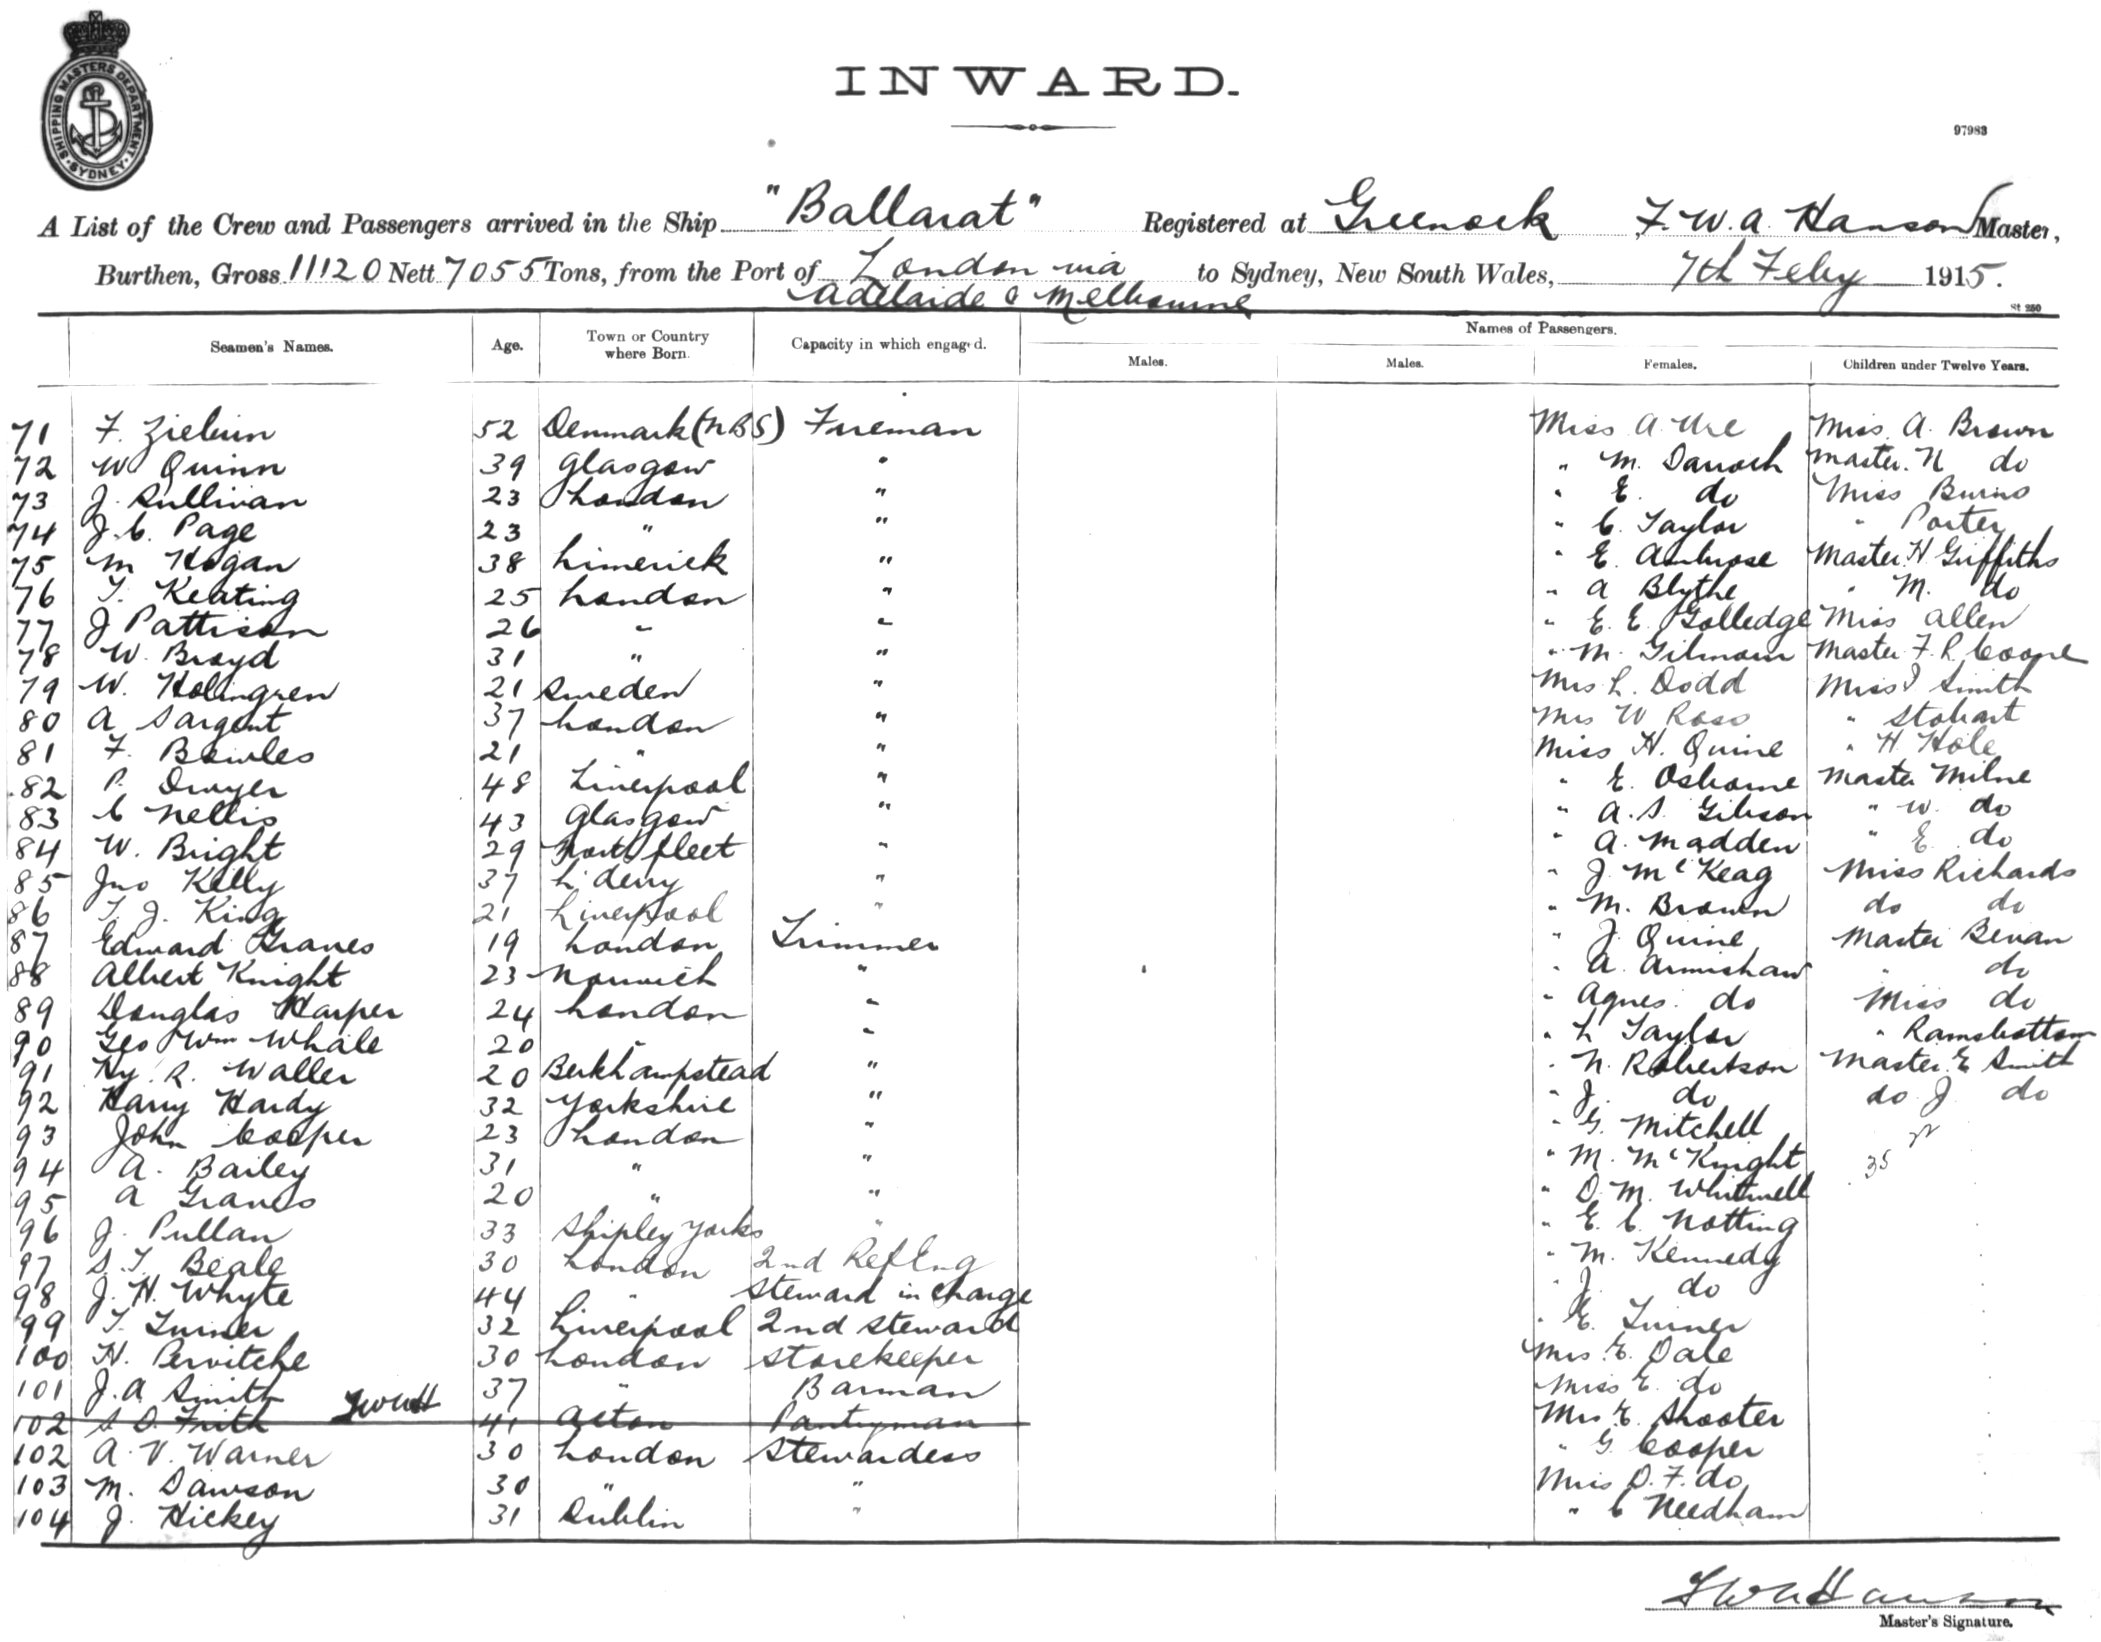 SHIPPING MASTERS DEPARTMENT. SYDNEY
INWARD.
97983
A List of the Crew and Passengers arrived in the Ship "Ballarat" Registered at Greenock F. W. A. Hanson Master,
Burthen, Gross 11120 Nett 7055 Tons, from the Port of London via to Sydney, New South Wales, 7th Feby 1915.
Adelaide & Melbourne
St 250
Seamen's Names. Age. Town or Country where Born. Capacity in which engaged. Names of Passengers.
Males. Males. Females. Children under Twelve Years.
71 F. 52 Denmark (NBS) Fireman Miss A. Ure Miss. A. Brown
72 W Quinn 39 Glasgow " " M. Darroch Master. N do
73 J. Sullivan 23 London " " E. do Miss Burns
74 J. C. Page 23 " " " C. Taylor " Porter
75 M Hogan 38 Limerick " " E. Ambrose Master H Griffiths
76 T. Keating 25 London " " A Blythe " M. do
77 J Pattison 26 " " " E. E. Golledge Miss Allen
78 W. Broyd 31 " " " M. Gilmour Master F. R. Coope
79 W. Holmgren 21 Sweden " Mrs L. Dodd Miss I Smith
80 A Sargent 37 London " Mrs W Ross " Stobart
81 F. Bowles 21 " " Miss H. Quine " H. Hole
82 P. Dwyer 48 Liverpool " " E. Osborne Master Milne
83 C Nellis 43 Glasgow " " A. S. Gibson " W. do
84 W. Bright 29 Northfleet " " A. Madden " E do
85 Jno Kelly 37 L'derry " " J. McKeag Miss Richards
86 T. J. King 21 Liverpool " " M. Brown do do
87 Edward Graves 19 London Trimmer " J. Quine Master Bevan
88 Albert Knight 23 Norwich " " A. Armishaw " do
89 Douglas Harper 24 London " " Agnes do Miss do
90 Geo Wm Whale 20 " " " L Taylor " Ramsbottom
91 Hy. R. Waller 20 Berkhampstead " " N. Robertson Master E Smith
92 Harry Hardy 32 Yorkshire " " J. do do J do
93 John Cooper 23 London " " G. Mitchell
94 A. Bailey 31 " " " M. McKnight 35
95 A Graves 20 " " " D. M. Whitwell
96 J. Pullan 33 Shipley Yorks " " E. C. Notting
97 S. T. Beale 30 London 2nd Ref Eng " M. Kennedy
98 J. H. Whyte 44 " Steward in charge " J. do
99 T. Turner 32 Liverpool 2nd Steward " E. Turner
100 H. Pervitche 30 London Storekeeper Mrs. E. Dale
101 J. A Smith 37 " Barman Miss E. do
102 S D. Frith 41 Acton Pantryman Mrs E. Shooter
102 A. V. Warner 30 London Stewardess " G. Cooper
103 M. Dawson 30 " " Miss D. F. do
104 J. Hickey 31 Dublin " " C Needham
F W A Hanson
Master's Signature.